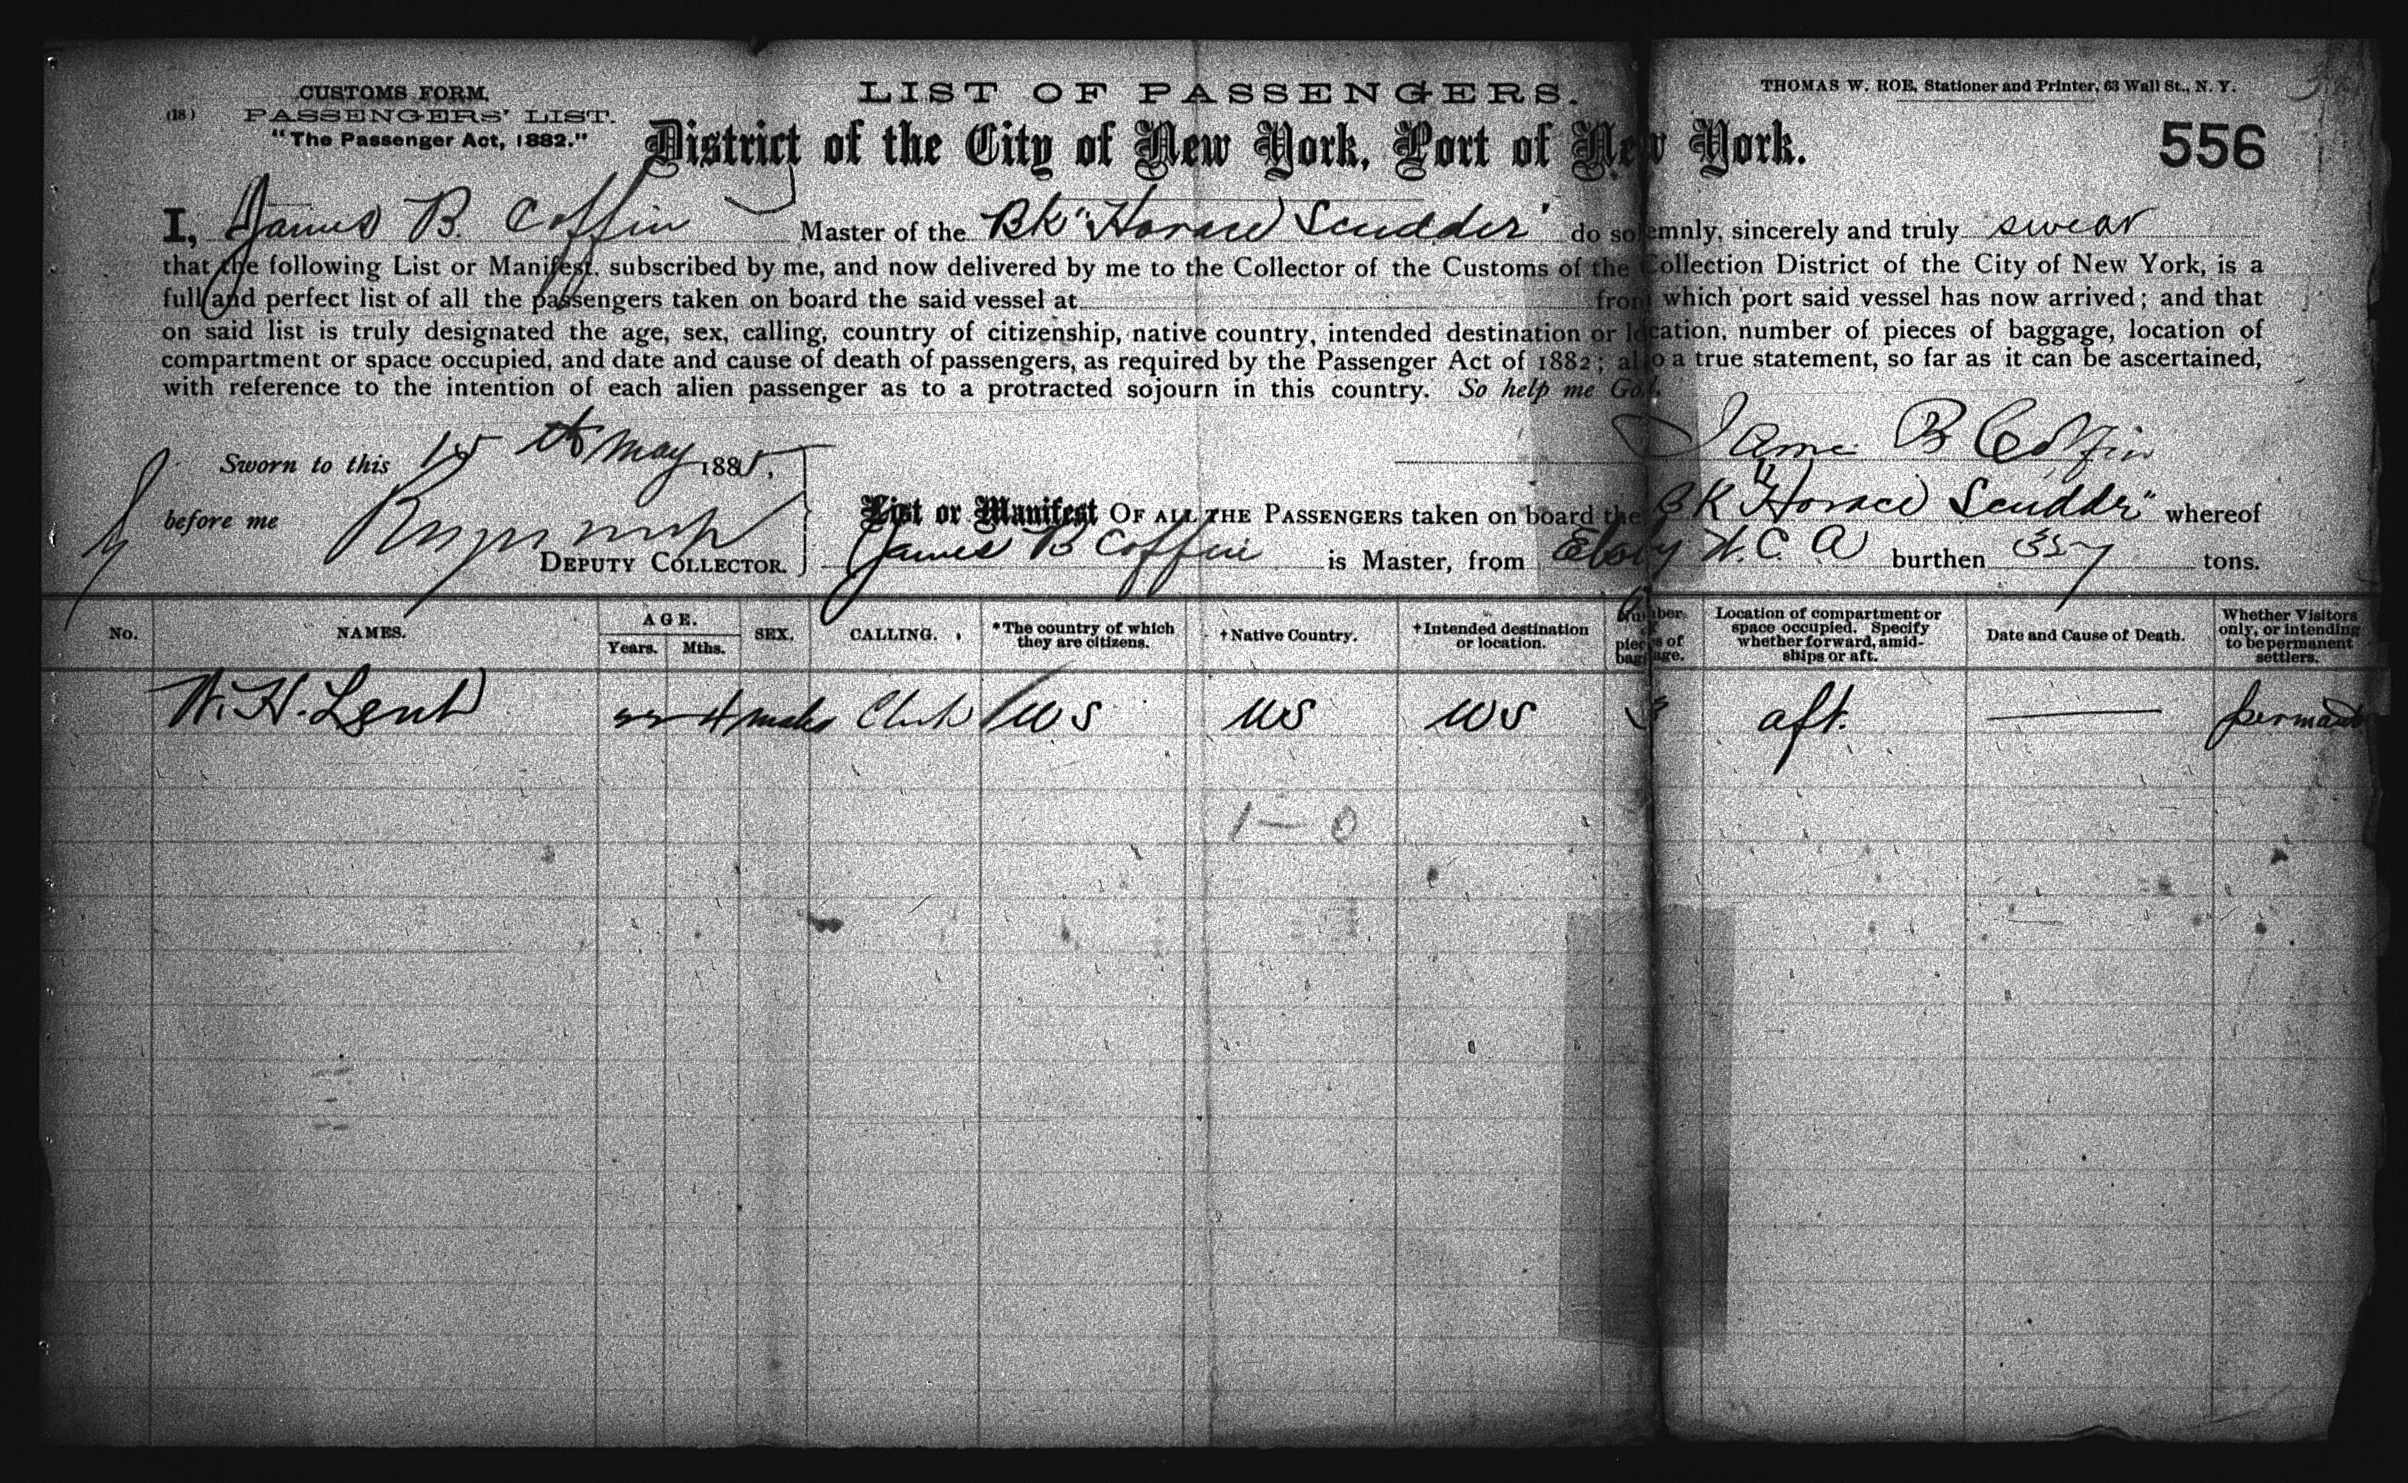 CUSTOMS FORM.
(18) PASSENGERS' LIST.
"The Passenger Act, 1882."
LIST OF PASSENGERS.
THOMAS W. ROE, Stationer and Printer, 63 Wall St., N. Y.
District of the City of New York, Port of New York.
556
I, James B. Coffin Master of the Bk "Horace Scudder" do solemnly, sincerely and truly swear
that the following List or Manifest, subscribed by me, and now delivered by me to the Collector of the Customs of the Collection District of the City of New York, is a
full and perfect list of all the passengers taken on board the said vessel at from which port said vessel has now arrived; and that
on said list is truly designated the age, sex, calling, country of citizenship, native country, intended destination or location, number of pieces of baggage, location of
compartment or space occupied, and date and cause of death of passengers, as required by the Passenger Act of 1882; also a true statement, so far as it can be ascertained,
with reference to the intention of each alien passenger as to a protracted sojourn in this country. So help me God.
James B Coffin
Sworn to this 15th May 1885,
before me
DEPUTY COLLECTOR.
List or Manifest OF ALL THE PASSENGERS taken on board the BK "Horace Scudder" whereof
James B Coffin is Master, from W. C. A burthen tons.
No. NAMES. AGE. Years. Mths. SEX. CALLING. *The country of which they are citizens. †Native Country. †Intended destination or location. Number of pieces of baggage. Location of compartment or space occupied. Specify whether forward, amidships or aft. Date and Cause of Death. Whether Visitors only, or intending to be permanent settlers.
W. H. Lent 4 male Clerk US US US 3 aft.
1 — 0